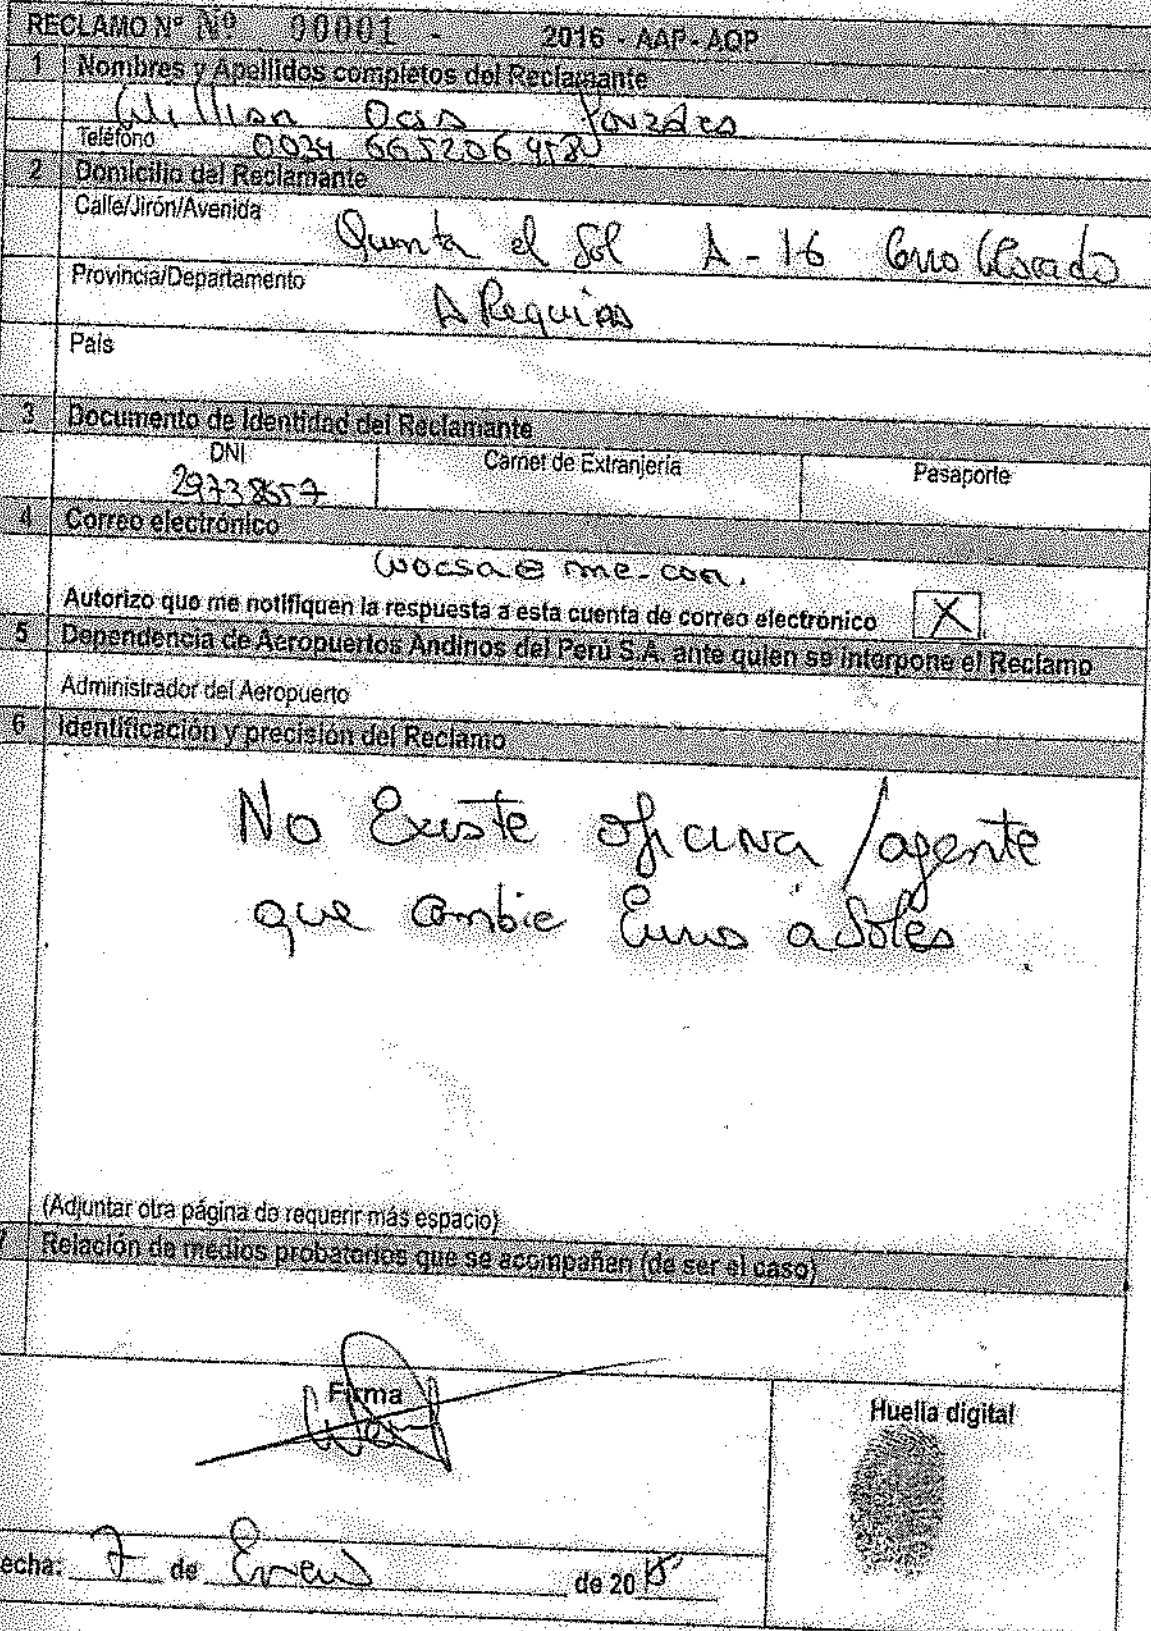 RECLAMO Nº Nº 00001 - 2016 - AAP - AQP
1 Nombres y Apellidos completos del Reclamante
Willian Ocsa
Teléfono 0034
2 Domicilio del Reclamante
Calle/Jirón/Avenida Quinta el Sol A-16 Cerro Colorado
Provincia/Departamento Arequipa
País
3 Documento de Identidad del Reclamante
DNI Carnet de Extranjería Pasaporte
29738657
4 Correo electrónico
wocsa@me.com.
Autorizo que me notifiquen la respuesta a esta cuenta de correo electrónico X
5 Dependencia de Aeropuertos Andinos del Perú S.A. ante quien se interpone el Reclamo
Administrador del Aeropuerto
6 Identificación y precisión del Reclamo
No Existe oficina / agente
que cambie Euros a Soles
(Adjuntar otra página de requerir más espacio)
7 Relación de medios probatorios que se acompañan (de ser el caso)
Firma
Huella digital
echa: 7 de Enero de 20